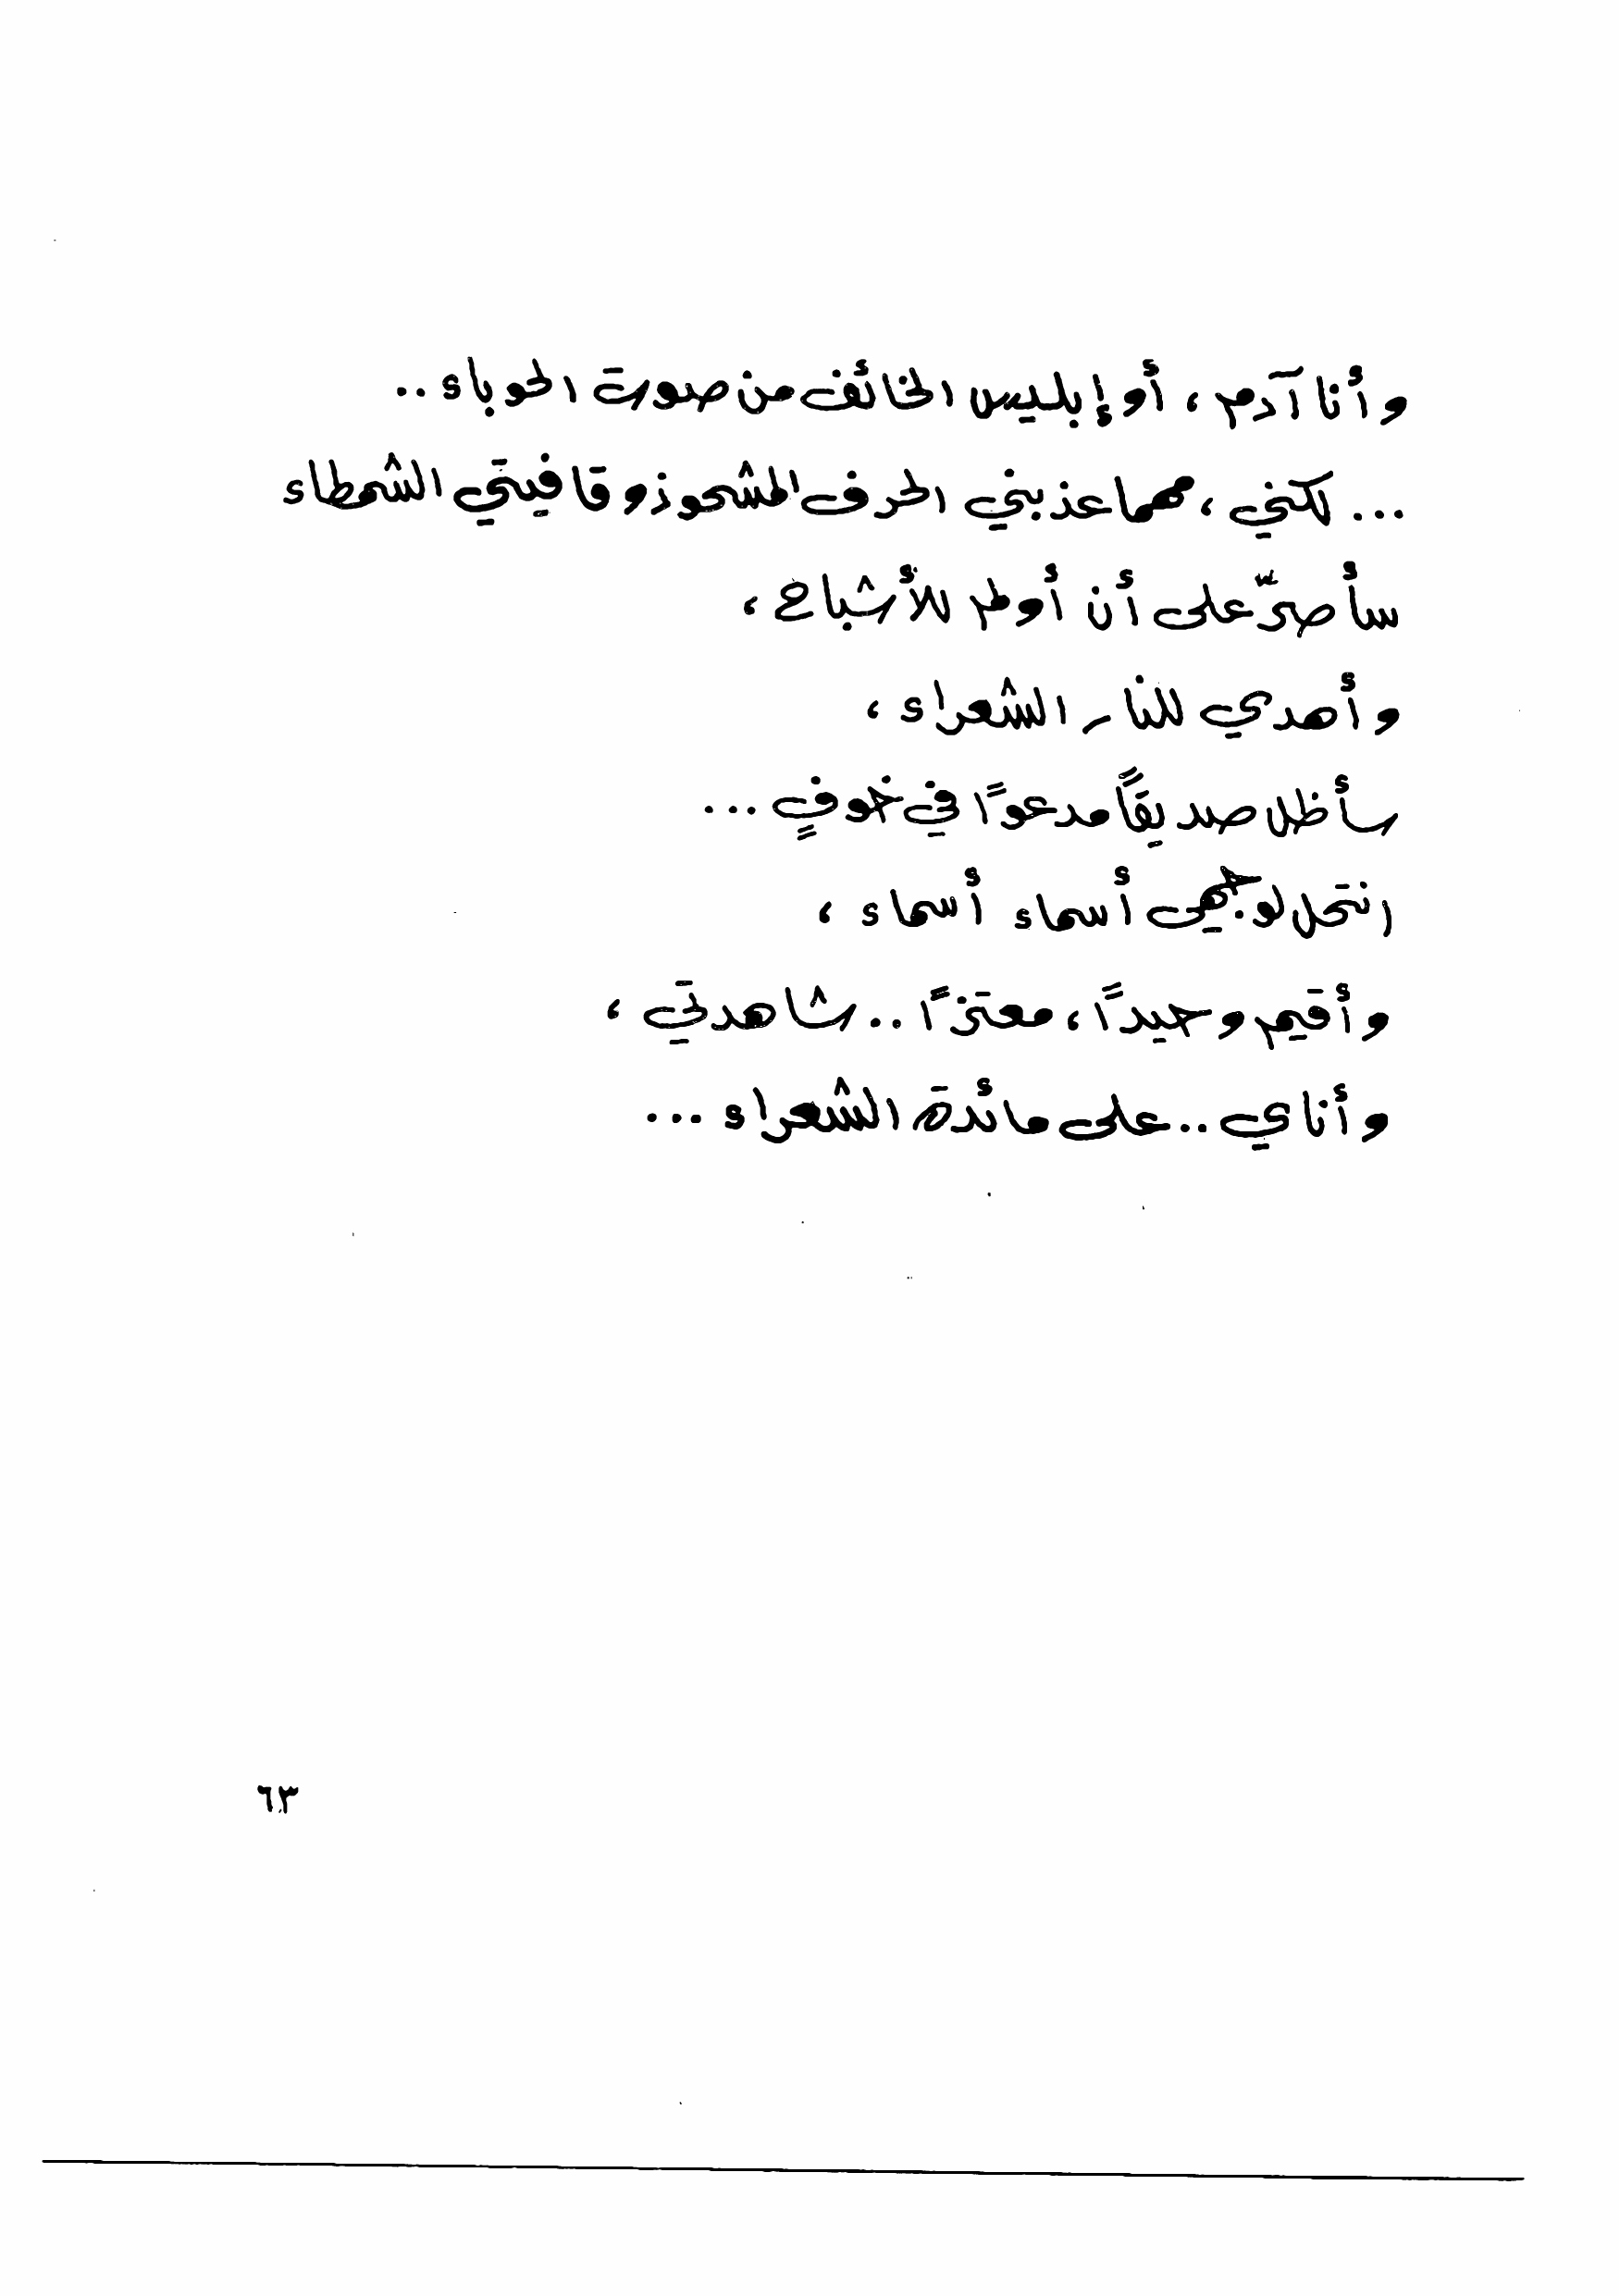 وأنا آدم ، أو إبليس الخائف من صوت الحوباء ..
... لكني ، مهما عذبني الحرف المشحوذ وقافيتي الشمطاء
سأصرّ على أن أولم للأشباح ،
وأهدي للنار الشعراء ،
سأظل صديقاً مدعوًا في خوفٍ ...
انتحل لوجهي أسماء أسماء ،
وأقيم وحيدًا ، معتزًا .. شاهدتي ،
وأناي .. على مائدة الشعراء ...
٦٣